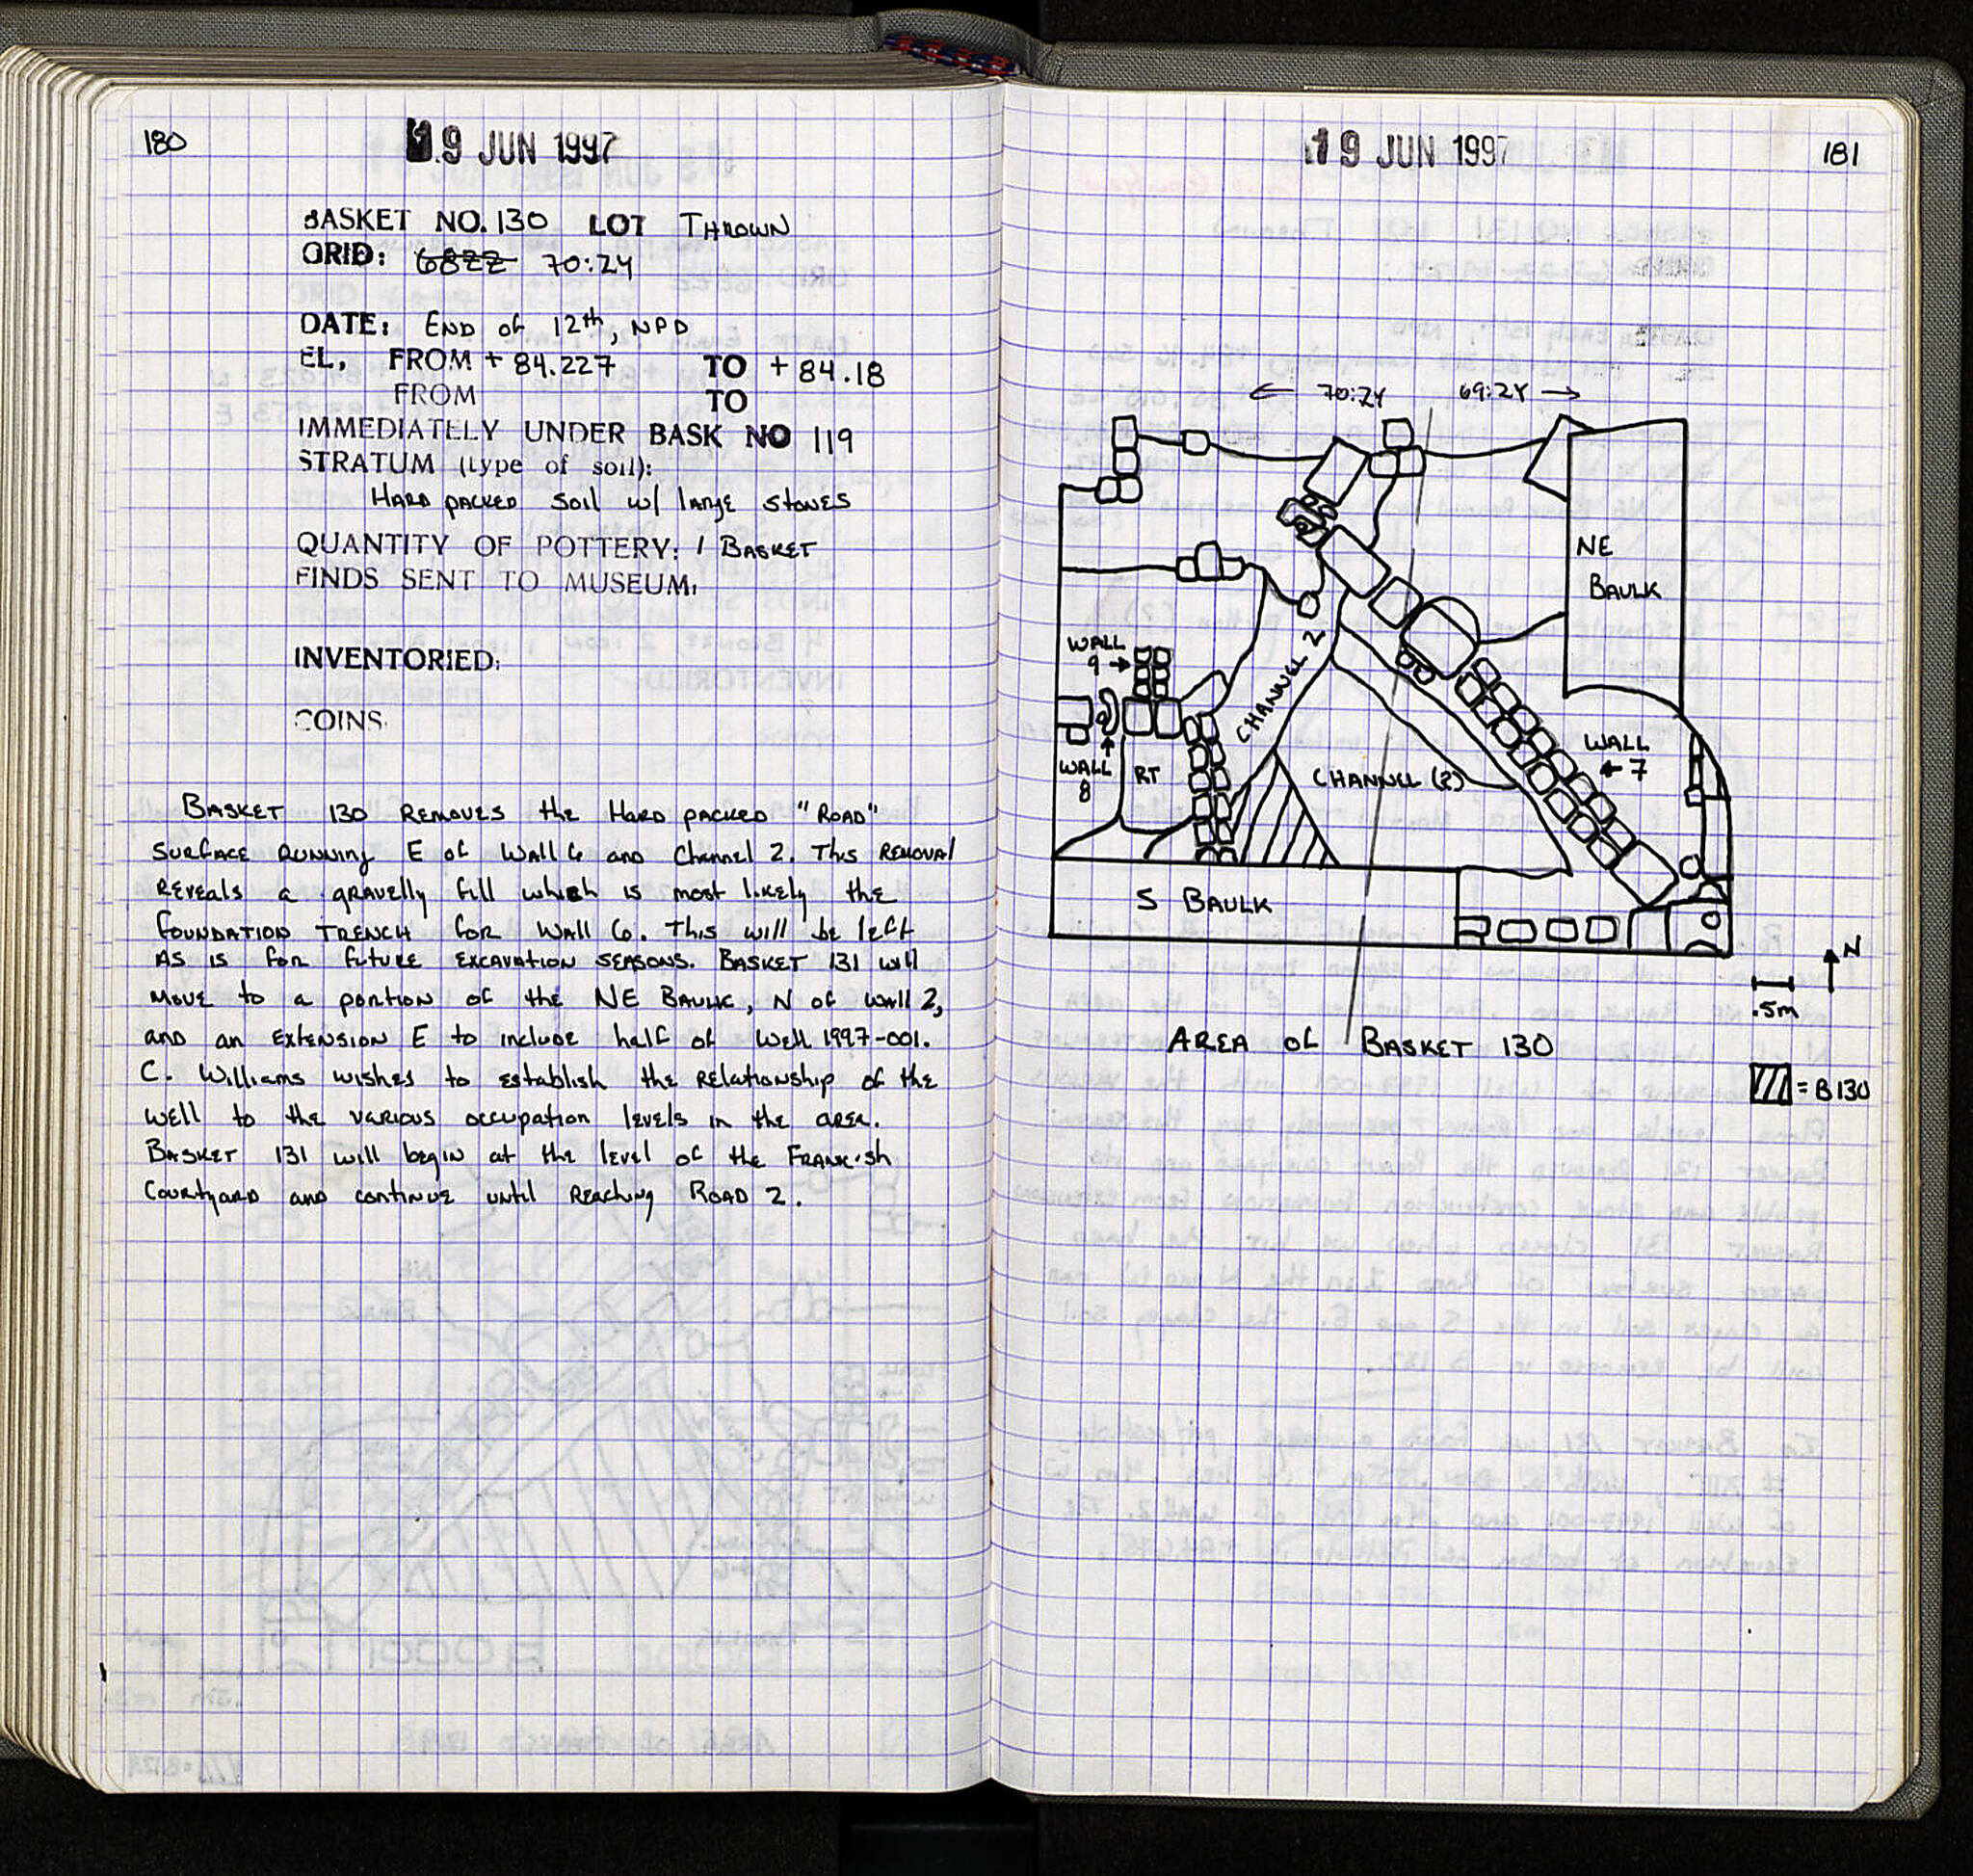 180
19 JUN 1997
BASKET NO. 130 LOT THROWN
GRID: 6822 70:ZY
DATE: END of 12th, NPD
EL, FROM + 84.227 TO + 84.18
FROM TO
IMMEDIATELY UNDER BASK NO 119
STRATUM (type of soil):
HARD packed soil w/ large stones
QUANTITY OF POTTERY: 1 BASKET
FINDS SENT TO MUSEUM:
INVENTORIED:
COINS
BASKET 130 REMOVES the HARD packed "ROAD"
SURFACE RUNNING E of Wall 6 and Channel 2. This REMOVAL
REVEALS a gravelly fill which is most likely the
FOUNDATION TRENCH for WALL 6. This will be left
AS is for future EXCAVATION SEASONS. BASKET 131 will
MOVE to a portion of the NE BAULK, N of Wall 2,
and an EXTENSION E to include half of Well 1997-001.
C. Williams wishes to establish the Relationship of the
well to the various occupation levels in the area.
BASKET 131 will begin at the level of the FRANKish
Courtyard and continue until reaching ROAD 2.
19 JUN 1997
181
← 70:ZY 69:ZY →
NE
BAULK
WALL
9 →
CHANNEL 2
WALL
← 7
WALL
8
RT
CHANNEL (2)
S BAULK
N
.5m
AREA of BASKET 130
= B130